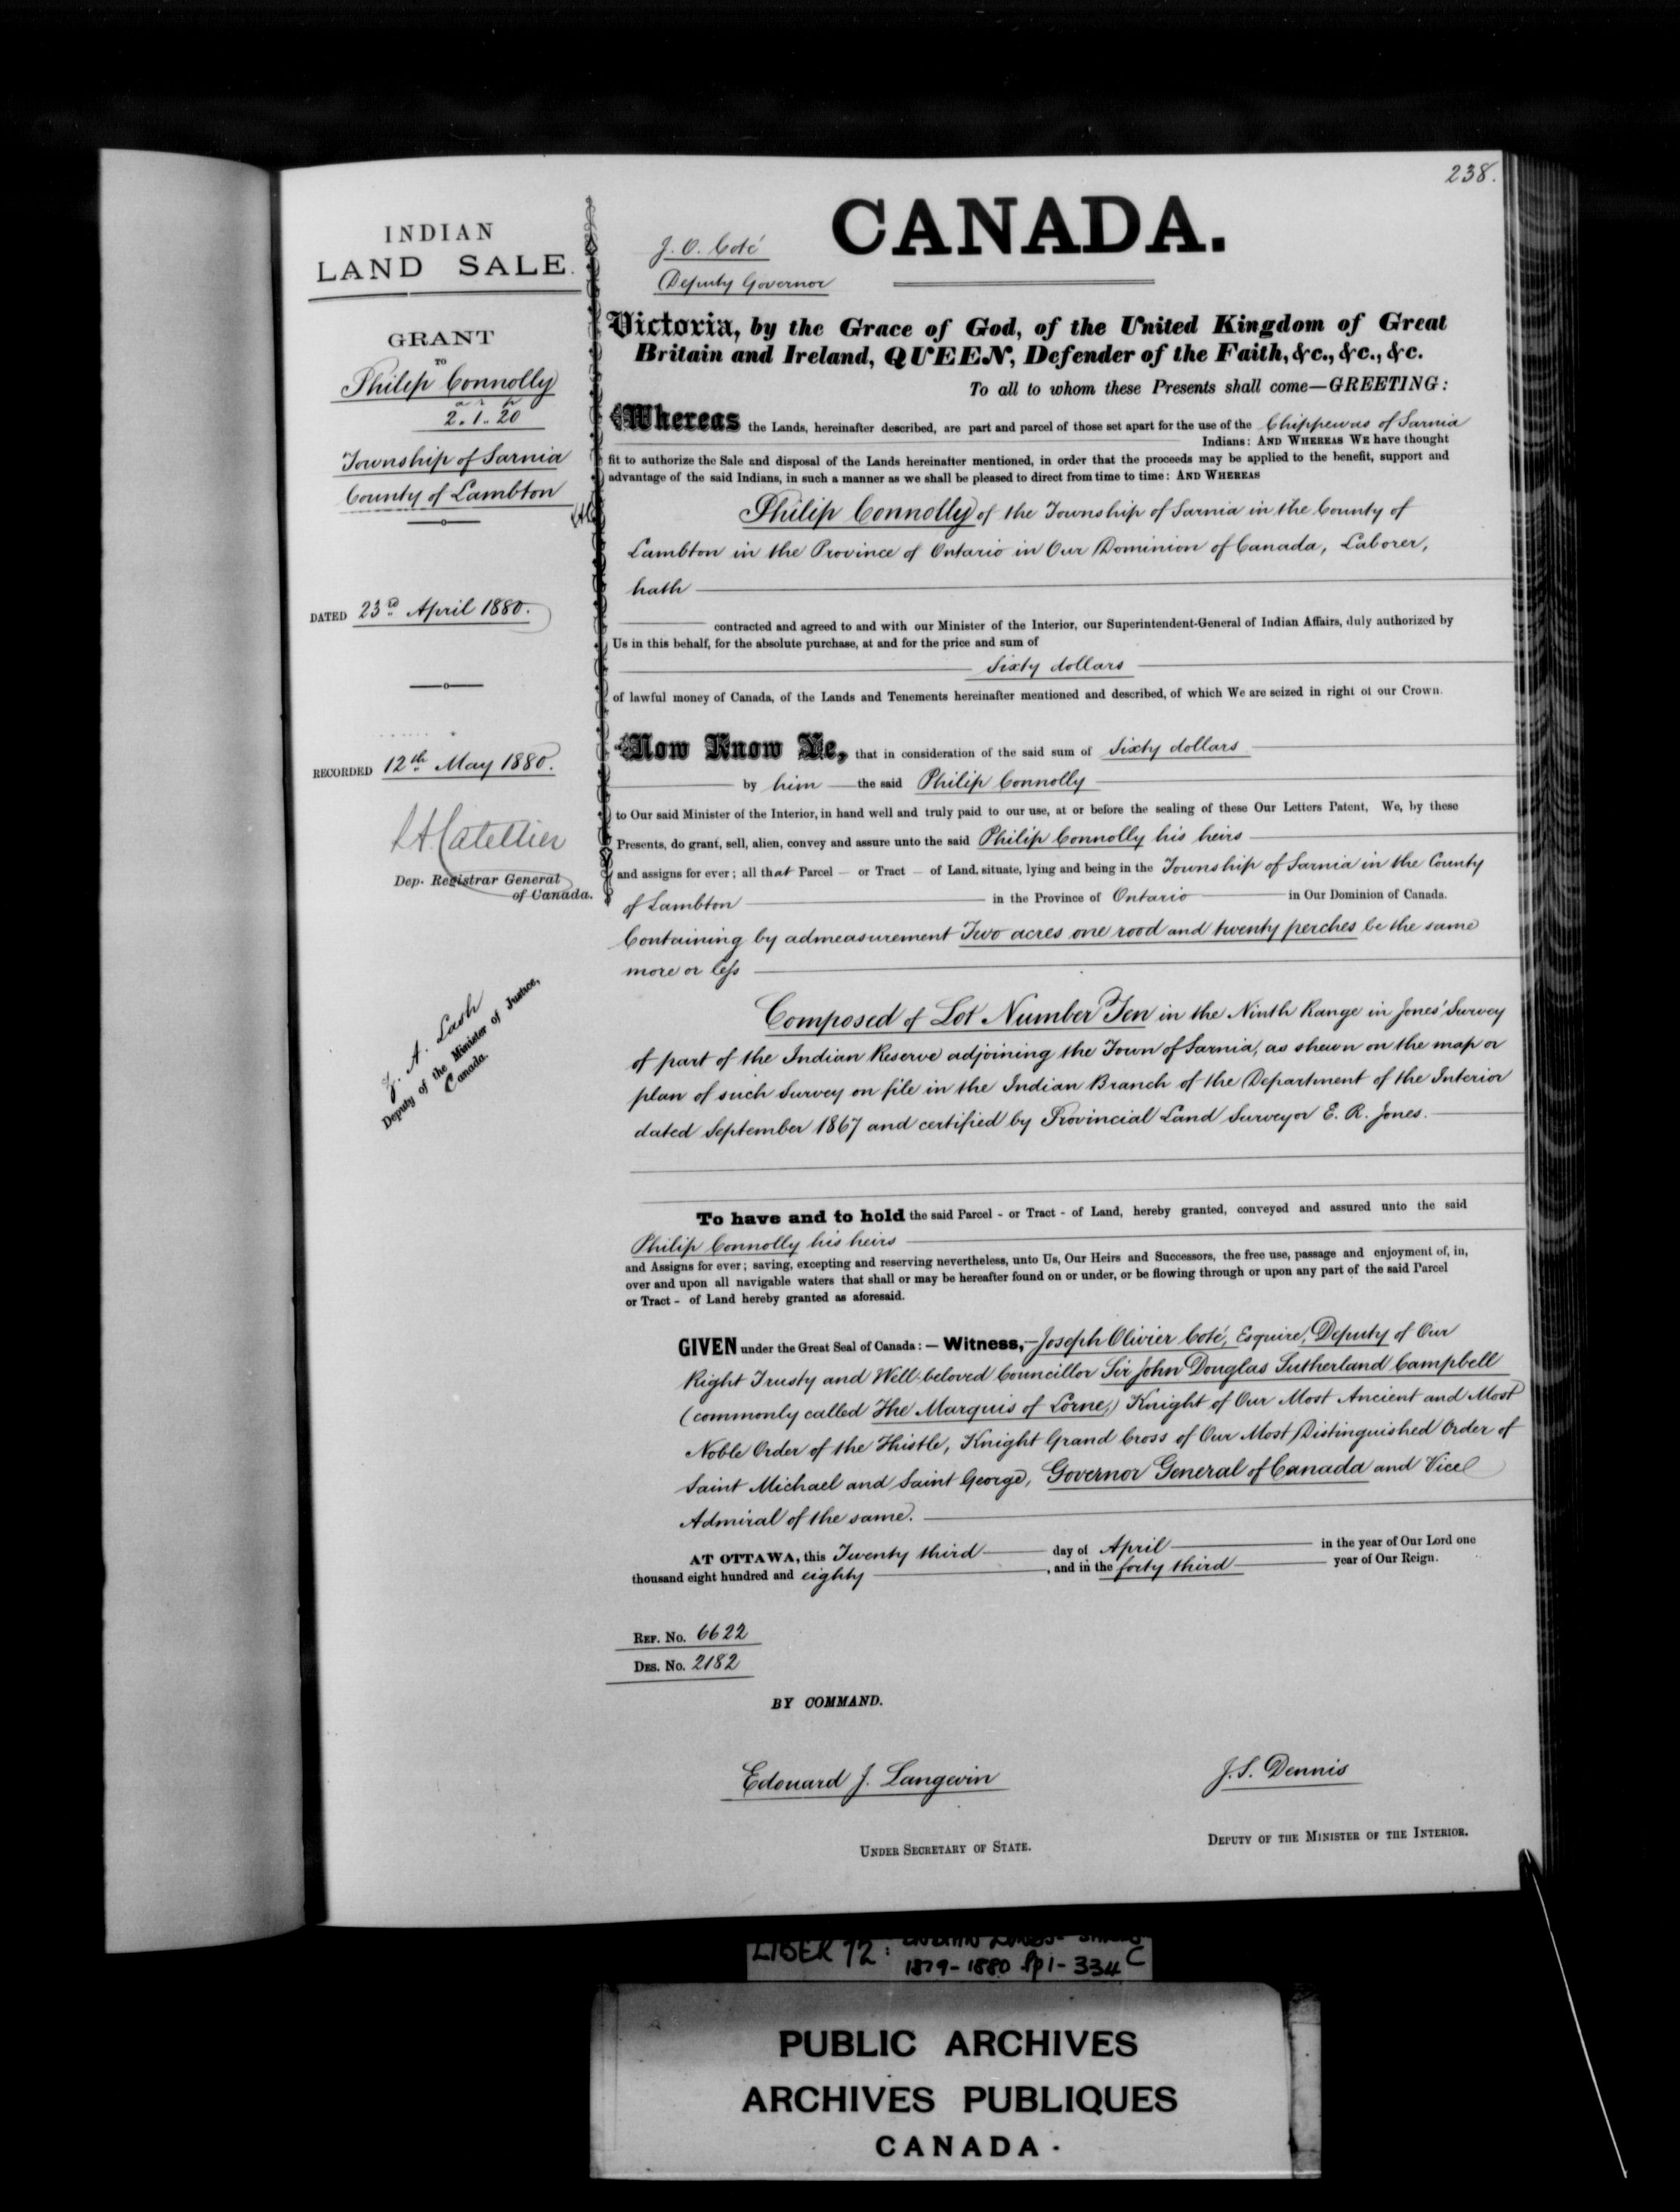 238.
INDIAN
LAND SALE.
GRANT
TO
Philip Connolly
a r p
2. 1. 20
Township of Sarnia
County of Lambton
DATED 23rd April 1880.
RECORDED 12th May 1880.
L.A. Catellier
Dep. Registrar General
of Canada.
Z. A. Lash
Deputy of the Minister of Justice,
Canada.
J. O. Coté
Deputy Governor
CANADA.
Victoria, by the Grace of God, of the United Kingdom of Great
Britain and Ireland, QUEEN, Defender of the Faith, &c., &c., &c.
To all to whom these Presents shall come—GREETING:
Whereas the Lands, hereinafter described, are part and parcel of those set apart for the use of the Chippewas of Sarnia
Indians: AND WHEREAS WE have thought
fit to authorize the Sale and disposal of the Lands hereinafter mentioned, in order that the proceeds may be applied to the benefit, support and
advantage of the said Indians, in such a manner as we shall be pleased to direct from time to time: AND WHEREAS
Philip Connolly of the Township of Sarnia in the County of
Lambton in the Province of Ontario in Our Dominion of Canada, Laborer,
hath
contracted and agreed to and with our Minister of the Interior, our Superintendent-General of Indian Affairs, duly authorized by
Us in this behalf, for the absolute purchase, at and for the price and sum of
Sixty dollars
of lawful money of Canada, of the Lands and Tenements hereinafter mentioned and described, of which We are seized in right of our Crown.
Now Know Ye, that in consideration of the said sum of Sixty dollars
by him the said Philip Connolly
to Our said Minister of the Interior, in hand well and truly paid to our use, at or before the sealing of these Our Letters Patent, We, by these
Presents, do grant, sell, alien, convey and assure unto the said Philip Connolly his heirs
and assigns for ever; all that Parcel — or Tract — of Land, situate, lying and being in the Township of Sarnia in the County
of Lambton in the Province of Ontario in Our Dominion of Canada.
Containing by admeasurement Two acres one rood and twenty perches be the same
more or less
Composed of Lot Number Ten in the Ninth Range in Jones' Survey
of part of the Indian Reserve adjoining the Town of Sarnia, as shewn on the map or
plan of such Survey on file in the Indian Branch of the Department of the Interior
dated September 1867 and certified by Provincial Land Surveyor E. R. Jones.
To have and to hold the said Parcel - or Tract - of Land, hereby granted, conveyed and assured unto the said
Philip Connolly his heirs
and Assigns for ever; saving, excepting and reserving nevertheless, unto Us, Our Heirs and Successors, the free use, passage and enjoyment of, in,
over and upon all navigable waters that shall or may be hereafter found on or under, or be flowing through or upon any part of the said Parcel
or Tract - of Land hereby granted as aforesaid.
GIVEN under the Great Seal of Canada: — Witness, — Joseph Olivier Coté, Esquire, Deputy of Our
Right Trusty and Well-beloved Councillor Sir John Douglas Sutherland Campbell
(commonly called The Marquis of Lorne,) Knight of Our Most Ancient and Most
Noble Order of the Thistle, Knight Grand Cross of Our Most Distinguished Order of
Saint Michael and Saint George, Governor General of Canada and Vice
Admiral of the same.
AT OTTAWA, this Twenty third day of April in the year of Our Lord one
thousand eight hundred and eighty, and in the forty third year of Our Reign.
REF. No. 6622
DES. No. 2182
BY COMMAND.
Edouard J. Langevin
UNDER SECRETARY OF STATE.
J. S. Dennis
DEPUTY OF THE MINISTER OF THE INTERIOR.
LIBER 92: INDIAN LANDS
1879-1880 pp 1-334 C
PUBLIC ARCHIVES
ARCHIVES PUBLIQUES
CANADA